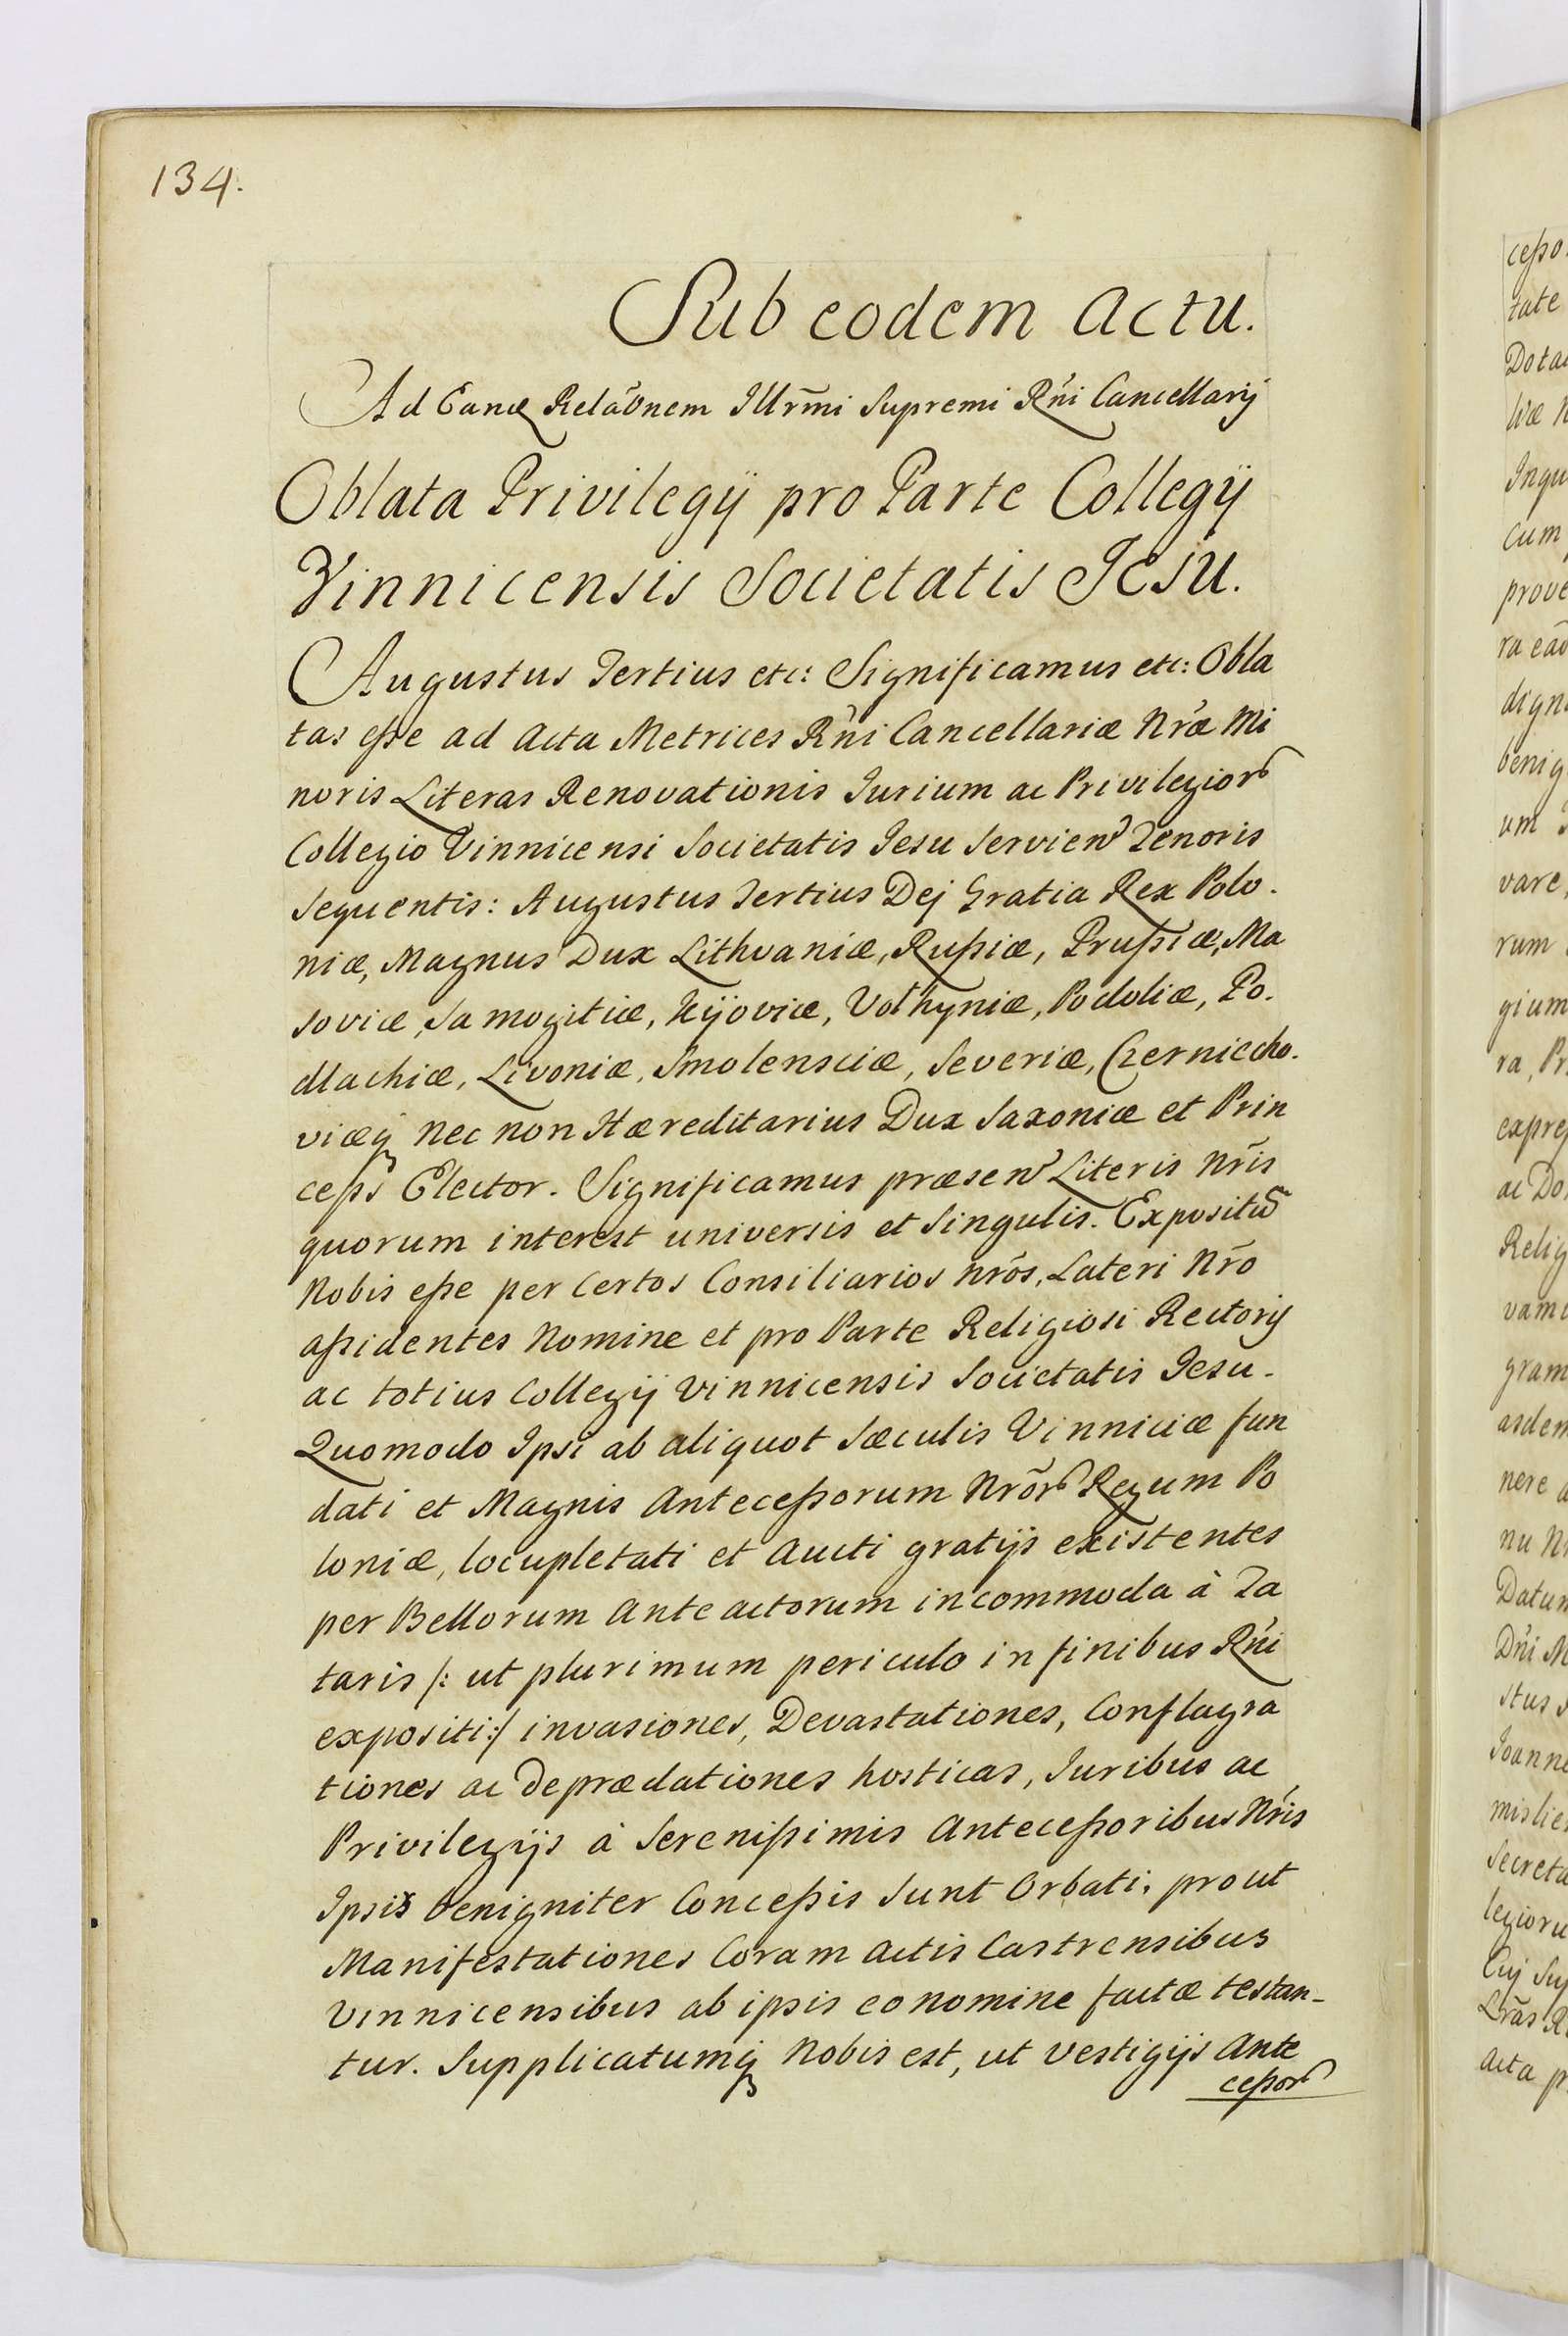 134.
Sub eodem Actu.
Ad Eandē Relãonem Illr̃mi Supremi R̃ni Cancellarij
Oblata Privilegij pro Parte Collegij
Vinnicensis Societatis Jesu.
Augustus Tertius etc: Significamus etc: Obla
tas eſse ad Acta Metrices R̃ni Cancellariæ Nr̃æ Mi
noris Literas Renovationis Jurium ac Privilegior
Collegio Vinnicensi Societatis Jesu Servien Tenoris
Sequentis: Augustus Tertius Dej Gratia Rex Polo-
niæ, Magnus Dux Lithvaniæ, Ruſsiæ, Pruſsiæ, Ma
soviæ, Samogitiæ, Kijoviæ, Volhyniæ, Podoliæ, Po-
dlachiæ, Livoniæ, Smolensciæ, Severiæ, Czerniecho-
viæq nec non Hæreditarius Dux Saxoniæ et Prin
ceps Elector. Significamus præsen Literis Nr̃is
quorum interest universis et Singulis. Expositũ
Nobis eſse per Certos Consiliarios nr̃os, Lateri Nr̃o
aſsidentes Nomine et pro Parte Religiosi Rectoris
ac totius Collegij Vinnicensis Societatis Jesu.
Quomodo Ipsi ab aliquot Sæculis Vinniciæ fun
dati et Magnis Anteceſsorum Nr̃or Regum Po
loniæ, locupletati et Aucti gratijs existentes
per Bellorum Ante actorum incommoda à Ta
taris /: ut plurimum periculo in finibus R̃ni
expositi :/ invasiones, Devastationes, Conflagra
tiones ac deprædationes hosticas, Juribus ac
Privilegijs à Sereniſsimis Anteceſsoribus Nr̃is
Ipsis benigniter Conceſsis Sunt Orbati, prout
Manifestationes Coram Actis Castrensibus
Vinnicensibus ab ipsis eo nomine factæ testan-
tur. Supplicatumq Nobis est, ut vestigijs Ante
ceſsor
ceſso
tate
Dota
Inqu
cum
prove
digni
benig
um
vare,
rum
gium
ra, Pr
ac Do
Relig
vamu
gram
asdem
nere
nu
Datum
Dñi M
stus
Joanne
mislic
Secreta
legioru
Cuj Su
Lr̃as
Acta p